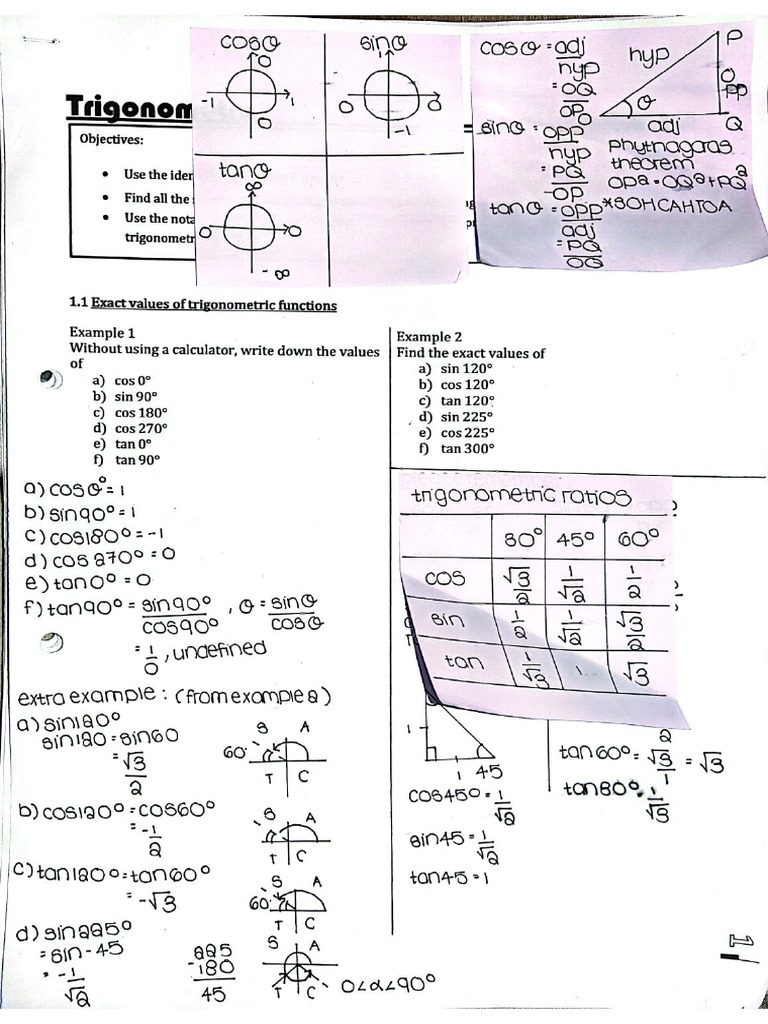 cosθ
0
-1
1
0
sinθ
1
0
0
-1
tanθ
∞
0
0
-∞
cosθ = adj
hyp
= OQ
OP
sinθ = opp
hyp
= PQ
OP
tanθ = opp
adj
= PQ
OQ
hyp
P
opp
θ
adj
Q
Phythagoras
theorem
OP² = OQ² + PQ²
*SOHCAHTOA
Trigonom
Objectives:
• Use the iden
• Find all the
• Use the nota
trigonometr
1.1 Exact values of trigonometric functions
Example 1
Without using a calculator, write down the values
of
a) cos 0°
b) sin 90°
c) cos 180°
d) cos 270°
e) tan 0°
f) tan 90°
Example 2
Find the exact values of
a) sin 120°
b) cos 120°
c) tan 120°
d) sin 225°
e) cos 225°
f) tan 300°
a) cos 0° = 1
b) sin 90° = 1
c) cos 180° = -1
d) cos 270° = 0
e) tan 0° = 0
f) tan 90° = sin 90° , θ = sinθ
cos 90° cosθ
= 1 , undefined
0
trigonometric ratios
30° 45° 60°
cos √3/2 1/√2 1/2
sin 1/2 1/√2 √3/2
tan 1/√3 1 √3
extra example : (from example 2)
a) sin 120°
sin 120 = sin 60
= √3
2
S A
60°
T C
b) cos 120° = cos 60°
= -1
2
S A
T C
c) tan 120° = tan 60°
= -√3
S A
60°
T C
d) sin 225°
= sin - 45
= -1
√2
225
- 180
45
S A
T C
0<α<90°
1
1 45
cos 45° = 1
√2
sin 45 = 1
√2
tan 45 = 1
2
tan 60° = √3 = √3
1
tan 30° = 1
√3
1